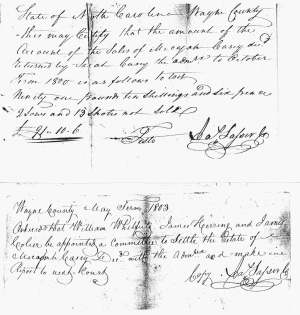 State of North Carolina Wayne County
This may Certify that the amount of the
Account of the Sales of Micajah Casey decd
returned by Sarah Casey the admrx to October
Term 1800 is as follows to wit
Ninety one pounds ten Shillings and Six pence
2 Sows and 13 Shotes not Sold
£ 91-10-6 Teste
Wayne County May Term 1803
Ordered that William Whitfield James Herring and
be appointed a Committee to Settle the Estate of
Micajah Casey Decd with the Admrx and make due
Report to next Court
Copy